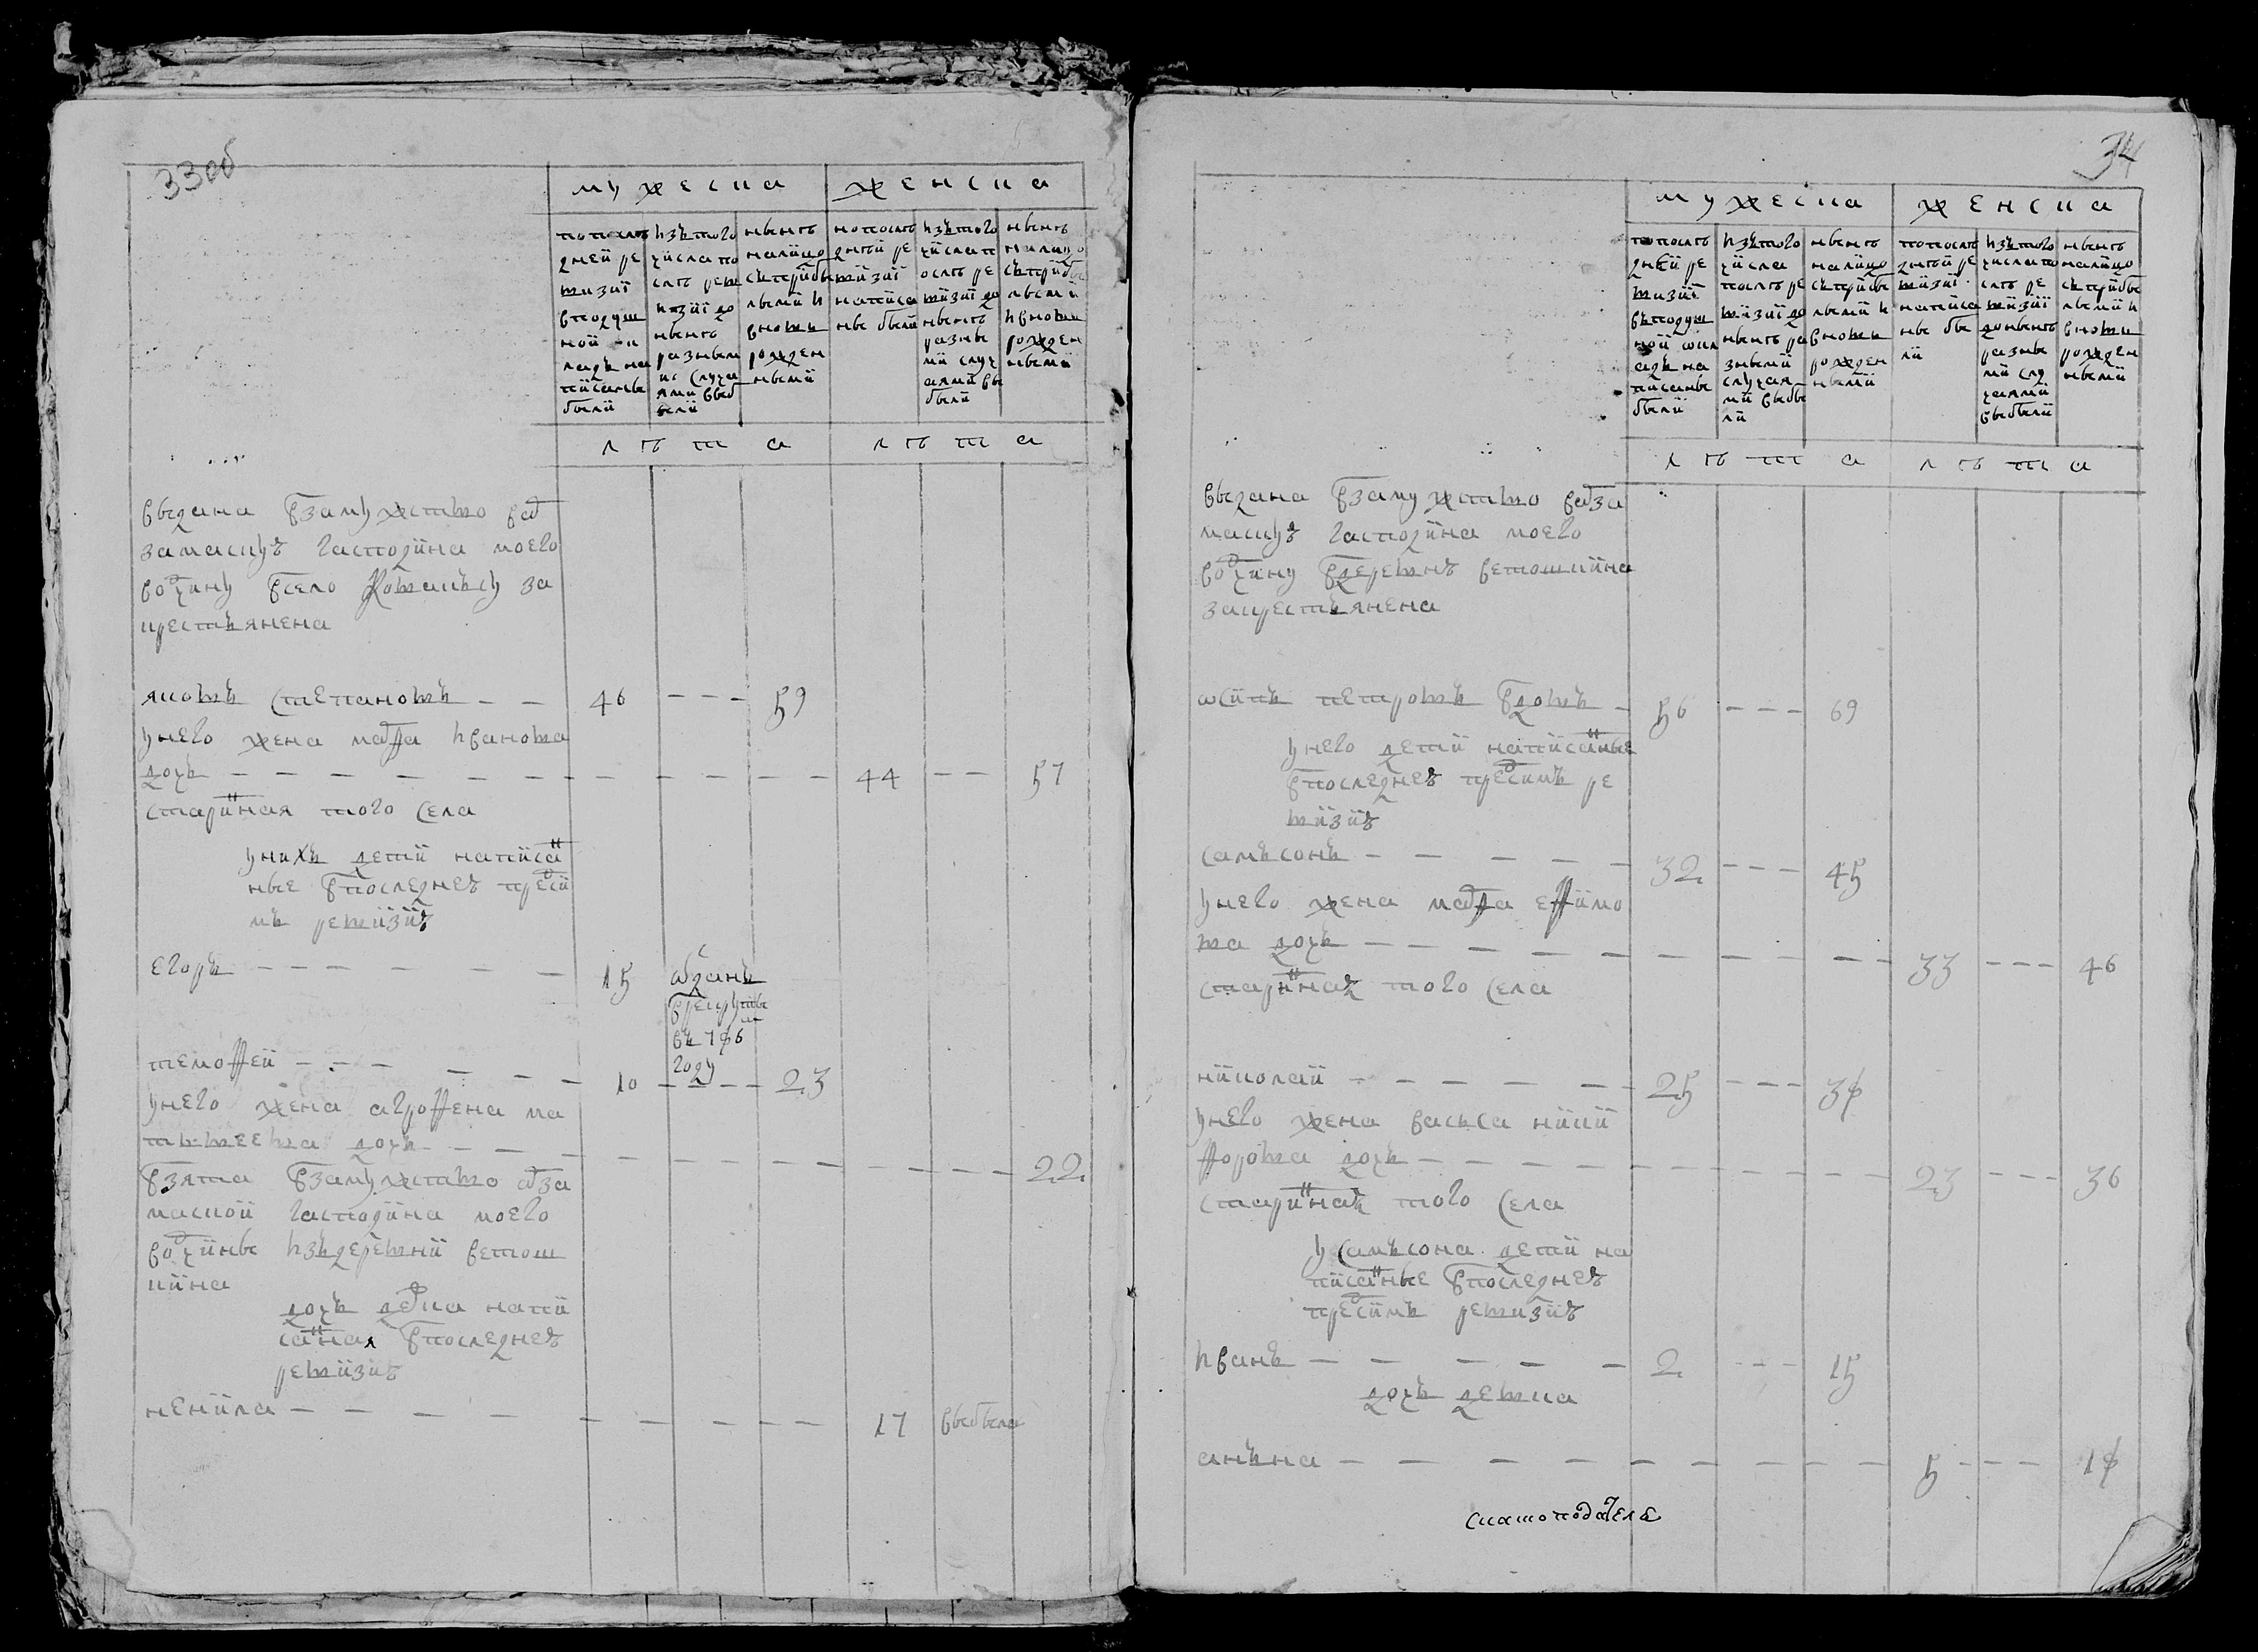 33об
мужеска
женска
попослѣ
дней ре
визиї
вподуш
ной
ладъ на
писанье
были
изътого
числа по
слѣ рев
изиї до
нынѣ
разными
случа
ями выб
ыли
нынѣ
налицо
съприбы
лыми и
вновь
рожден
ными
попослѣ
дней ре
визиї
написа
ны были
изътого
числа п
ослѣ ре
визиї до
нынѣ
разны
ми случ
аями вы
были
нынѣ
налицо
съприбы
лыми
и вновь
рожден
ными
лѣта
лѣта
выдана взамужство вод
замаскуѣ гасподина моего
вотчину всело за
крестьянена
яковъ степановъ 46 59
унего жена мавра иванова
дочь 44 57
старинная того села
унихъ дети написа
ные впоследнеѣ пред си
мъ ревизиѣ
егоръ 15 отданъ
врекруты
въ 796
году
темофей 10 23
унего жена аграфена ма
твеева дочь 22
взята взамужство отза
маской гасподина моего
вотчины изъдеревни ветош
кина
дочь девка напи
санная впоследнеѣ
ревизиѣ
ненила 17 выбыла
34
мужеска
женска
попослѣ
дней ре
визиї
въподуш
ной окл
адъ на
писанье
были
изътого
числа
послѣ ре
визиї до
нынѣ ра
зными
случая
ми выбы
ли
нынѣ
налицо
съприбы
лыми и
вновь
рожден
ными
попослѣ
дней ре
визиї
написа
ны бы
ли
изътого
числа по
слѣ ре
визиї
донынѣ
разны
ми слу
чаями
выбыли
нынѣ
налицо
съприбы
лыми и
вновь
рожден
ными
лѣта
лѣта
выдана взамужство водза
маскуѣ гасподина моего
вотчину вдеревнѣ ветошкина
закрестьянена
осипъ петровъ вдовъ 56 69
унего дети написаные
впоследнеѣ пред симъ ре
визиѣ
самъсонъ 32 45
унего жена мавра ефимо
ва дочь 33 46
старинная того села
николай 25 38
унего жена васьса ники
форова дочь 23 36
старинная того села
у самъсона дети на
писанные впоследнеѣ
предсимъ ревизиѣ
иванъ 2 15
дочь девка
анъна 5 18
скаскоподатель